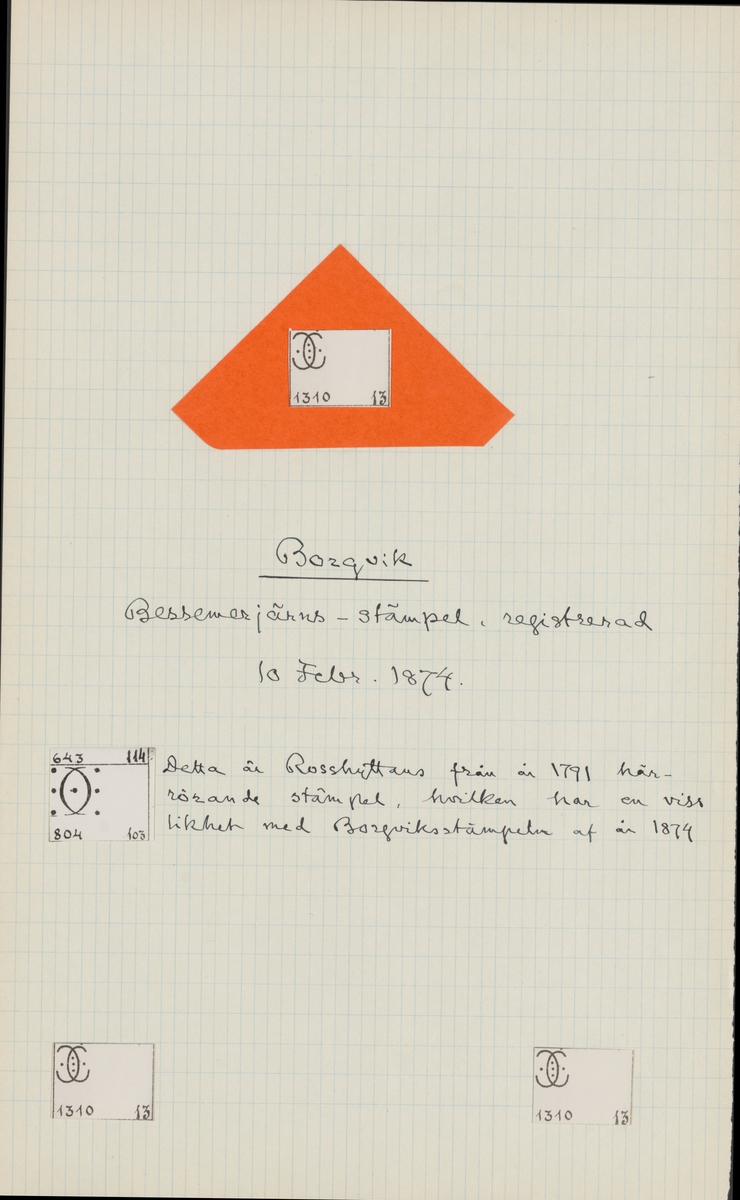 1310 13
Borgvik
Bessemerjärns - stämpel, registrerad
10 Febr. 1874.
643 114
804 103
Detta är Rosshyttans från år 1791 här-
rörande stämpel, hvilken har en viss
likhet med Borgviksstämpeln af år 1874
1310 13
1310 13